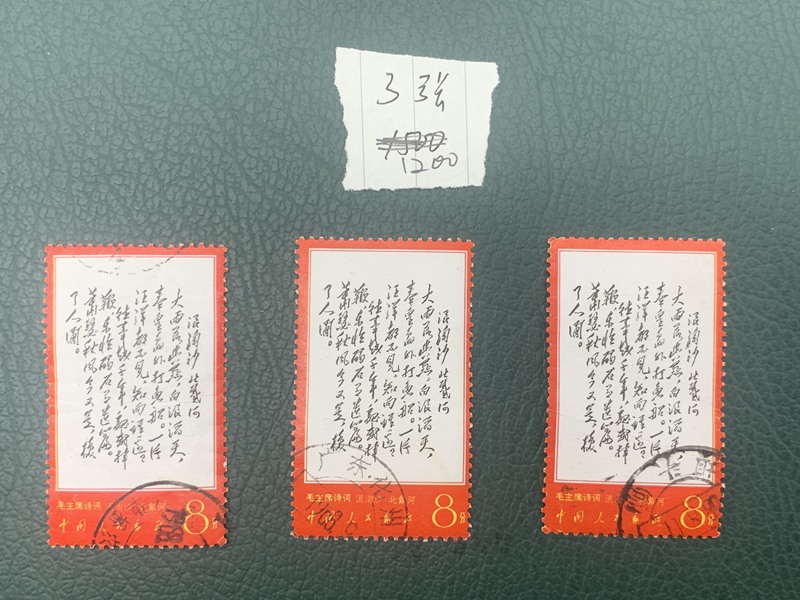 3 张
1500
1200
浪淘沙 北戴河
大雨落幽燕,白浪滔天、
秦皇岛外打鱼船。一片
汪洋都不見,知向誰邊、
往事越千年,魏武揮
鞭東臨碣石有遺篇。
蕭瑟秋風今又是,換
了人間。
毛主席诗词 浪淘沙 北戴河
中国人民邮政 8分
浪淘沙 北戴河
大雨落幽燕,白浪滔天、
秦皇岛外打鱼船。一片
汪洋都不見,知向誰邊、
往事越千年,魏武揮
鞭東臨碣石有遺篇。
蕭瑟秋風今又是,換
了人間。
广东
毛主席诗词 浪淘沙 北戴河
中国人民邮政 8分
浪淘沙 北戴河
大雨落幽燕,白浪滔天、
秦皇岛外打鱼船。一片
汪洋都不見,知向誰邊、
往事越千年,魏武揮
鞭東臨碣石有遺篇。
蕭瑟秋風今又是,換
了人間。
毛主席诗词 浪淘沙 北戴河
中国人民邮政 8分